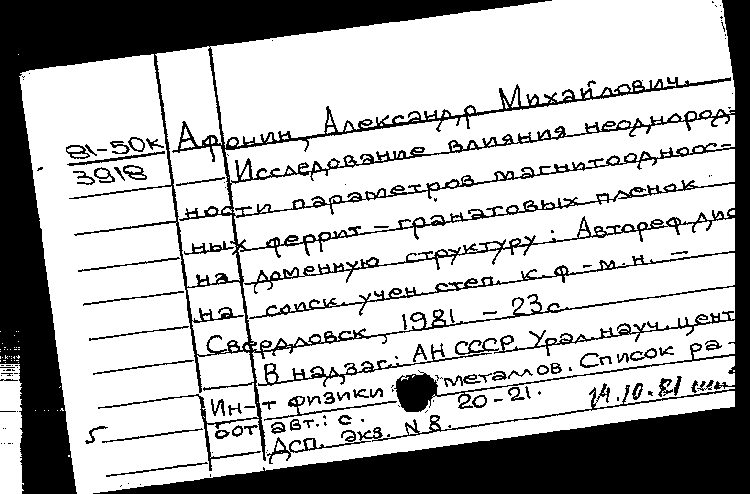 81-50к
3918
Афонин, Александр Михайлович.
Исследование влияния неоднород-
ности параметров магнитоодноос-
ных феррит-гранатовых пленок
на доменную структуру: Автореф. дис
на соиск. учен степ. к. ф.-м.н. -
Свердловск, 1981. - 23с.
В надзаг.: АН СССР. Урал. науч. цент
Ин-т физики металлов. Список ра-
бот авт.: с. 20-21.
5
Дсп. экз. N 8.
14.10.81